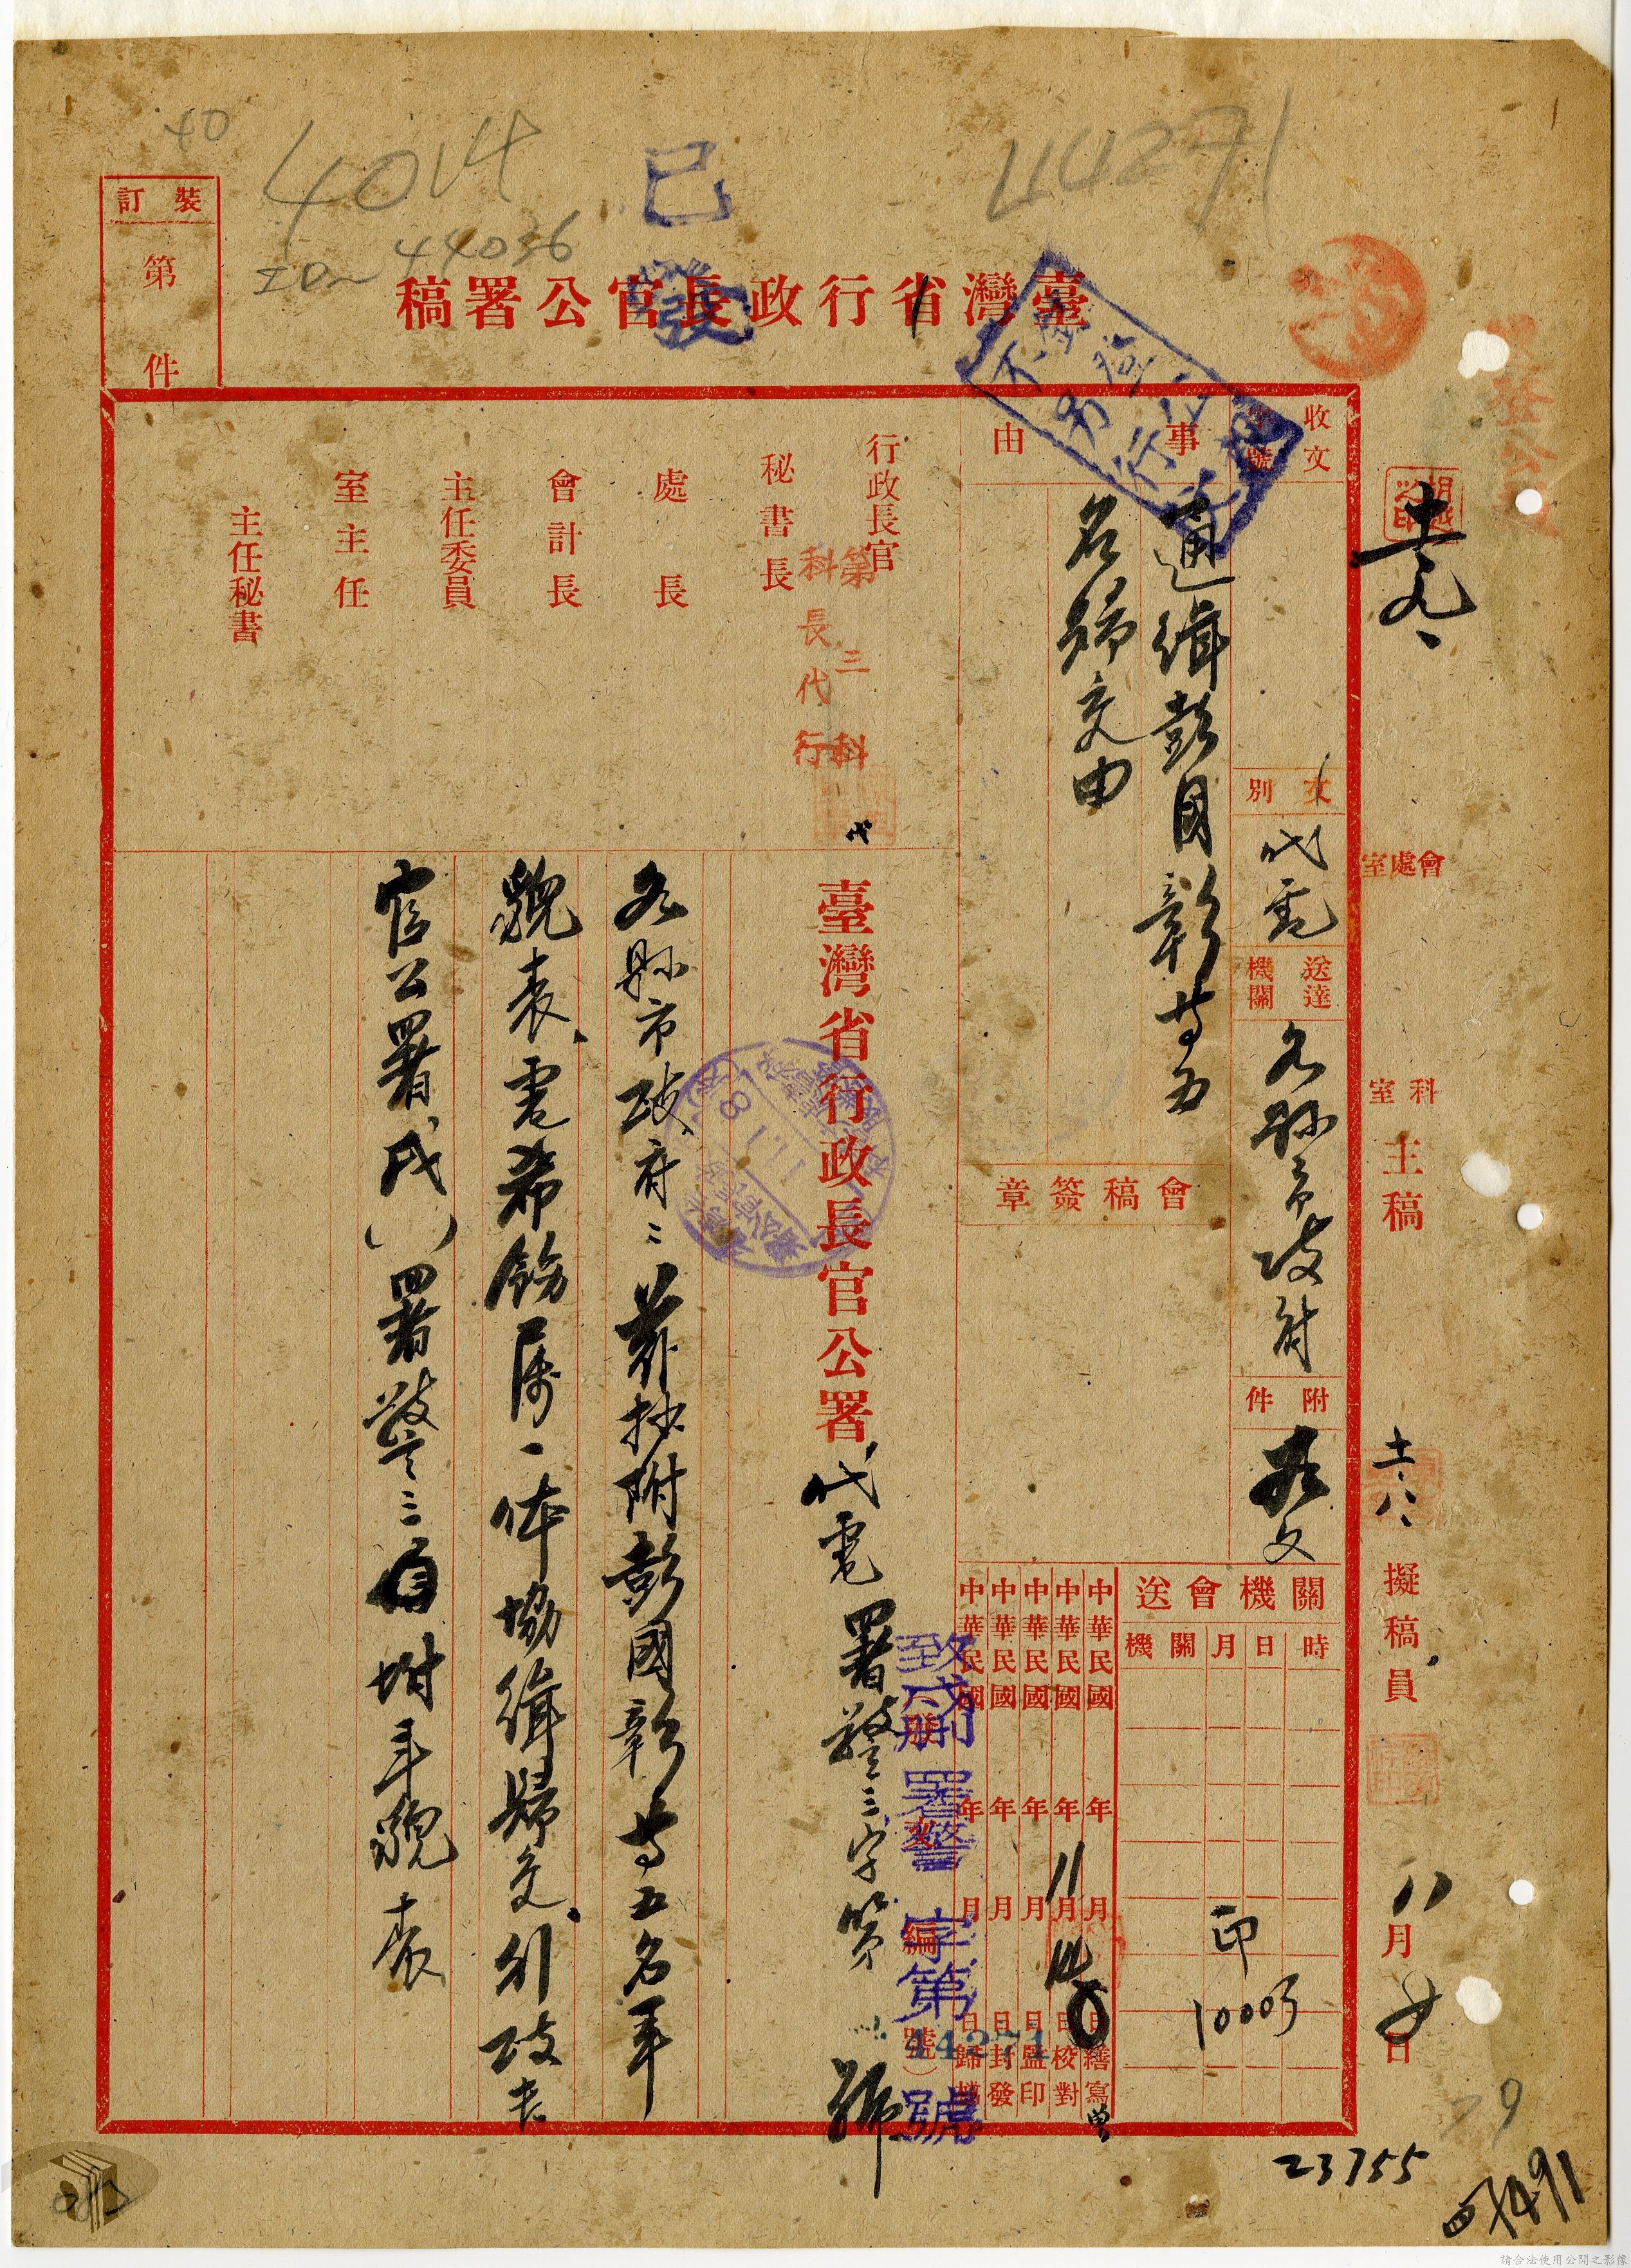 40
4014
44271
ID~44036
已發
裝訂
第
件
臺灣省行政長官公署稿
收文
字號
文別
代電
送達機關
各縣市政府
附件
如文
事由
通緝彭國彰等五
名歸案由
會稿簽章
關機會送
時
日
月
關機
印
10003
中華民國 年 月 日繕寫
中華民國 年 11月 14日校對
中華民國 年 月 日監印
中華民國 年 月 日封發
中華民國 年 月 日歸檔
行政長官
秘書長
第三科
科長代行
代
處長
會計長
主任委員
室主任
主任秘書
致戌刪署警 字第44271號
臺灣省行政長官公署代電 署警三字第 號
各縣市政府:茲抄附彭國彰等五名年
貌表電希飭屬一体協緝歸案行政長
官公署戌( )署警三 附年貌表
11.1.8
會處室
科室
主稿
十八
擬稿員
八月 日
29
23755
請合法使用公開之影像